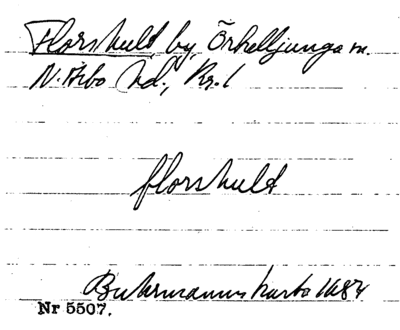 Florshuld, by, Örkelljunga sn.
N. Åsbo hd., Kr. l
florshuld
Buhrmanns karta 1684
Nr 5507.